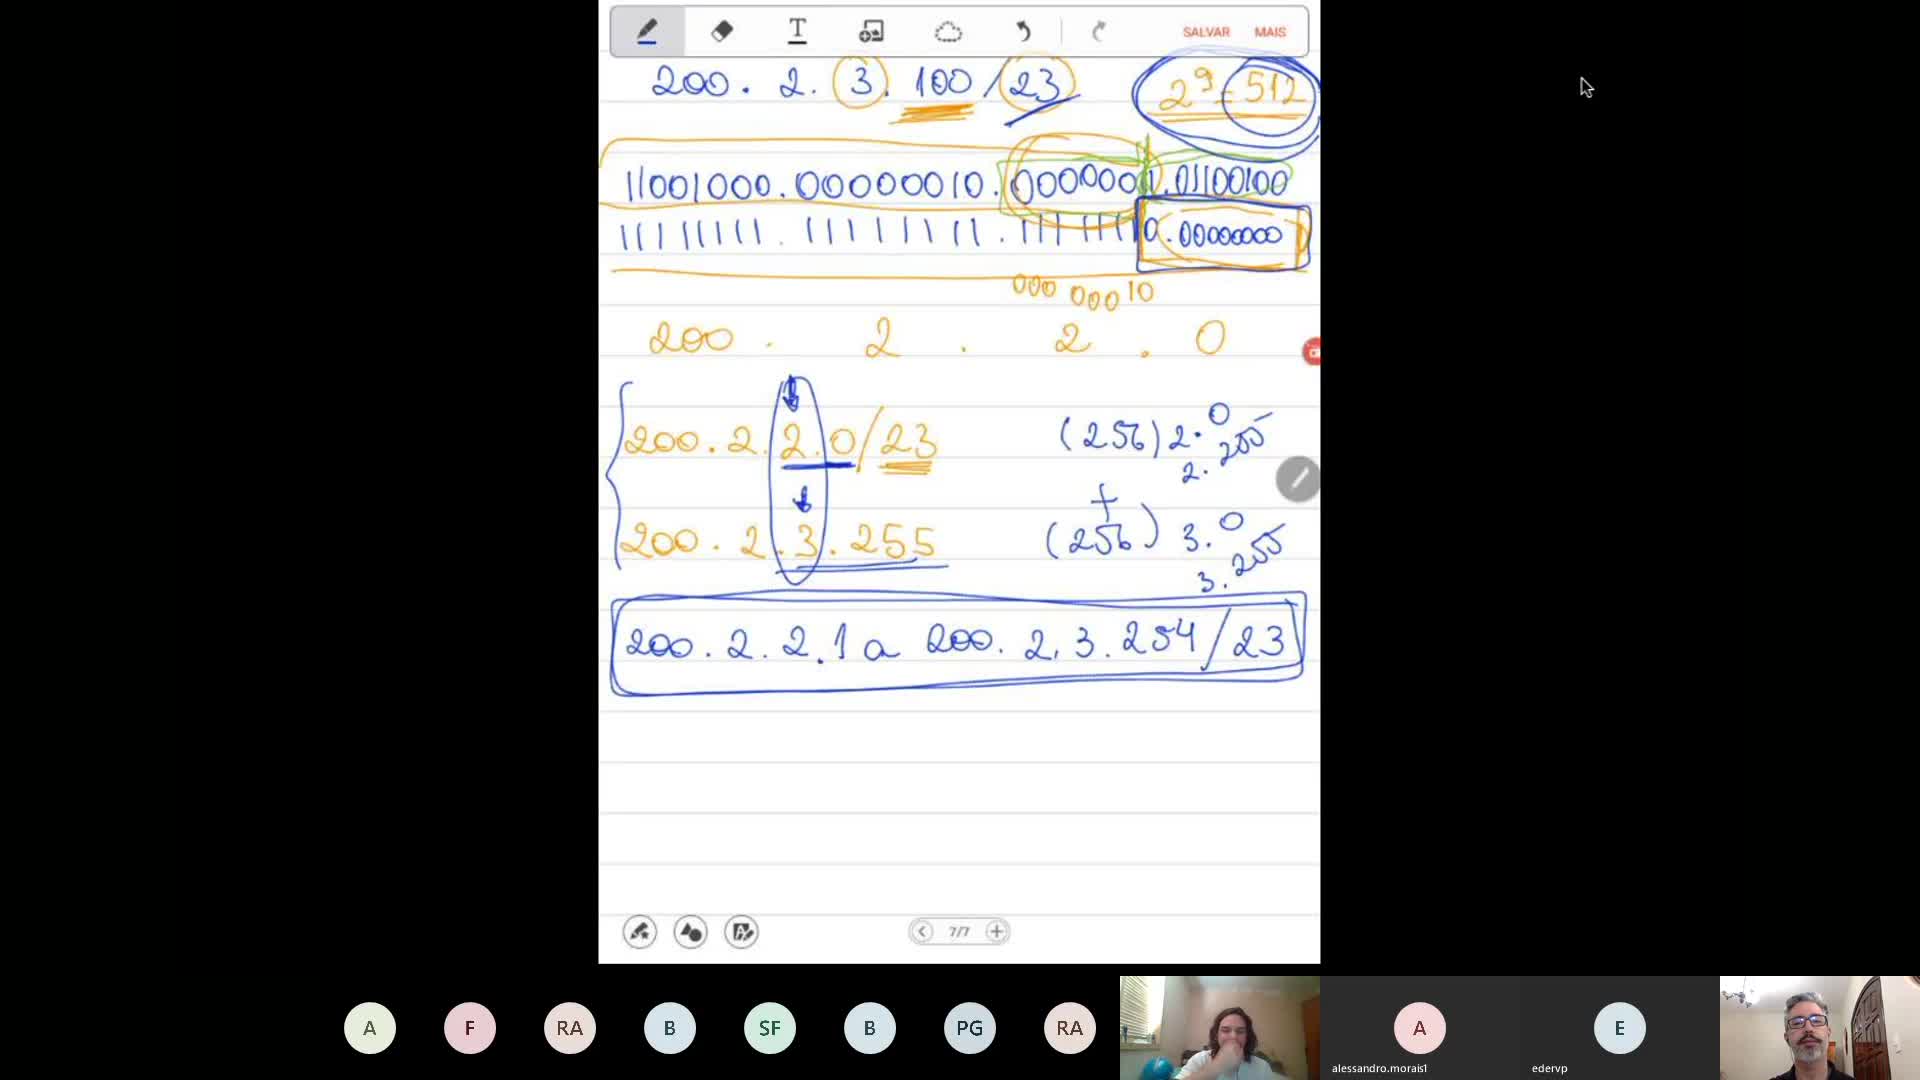 T SALVAR MAIS
200. 2. 3. 100 /23 2⁹=512
11001000.00000010.00000001.01100100
11111111.11111111.11111110.00000000
000 000 10
200 . 2 . 2 . 0
200.2.2.0/23 (256) 2.0
2.255
+
200.2.3.255 (256) 3.0
3.255
200.2.2.1 a 200.2.3.254/23
7/7
A F RA B SF B PG RA A E
alessandro.morais1 edervp